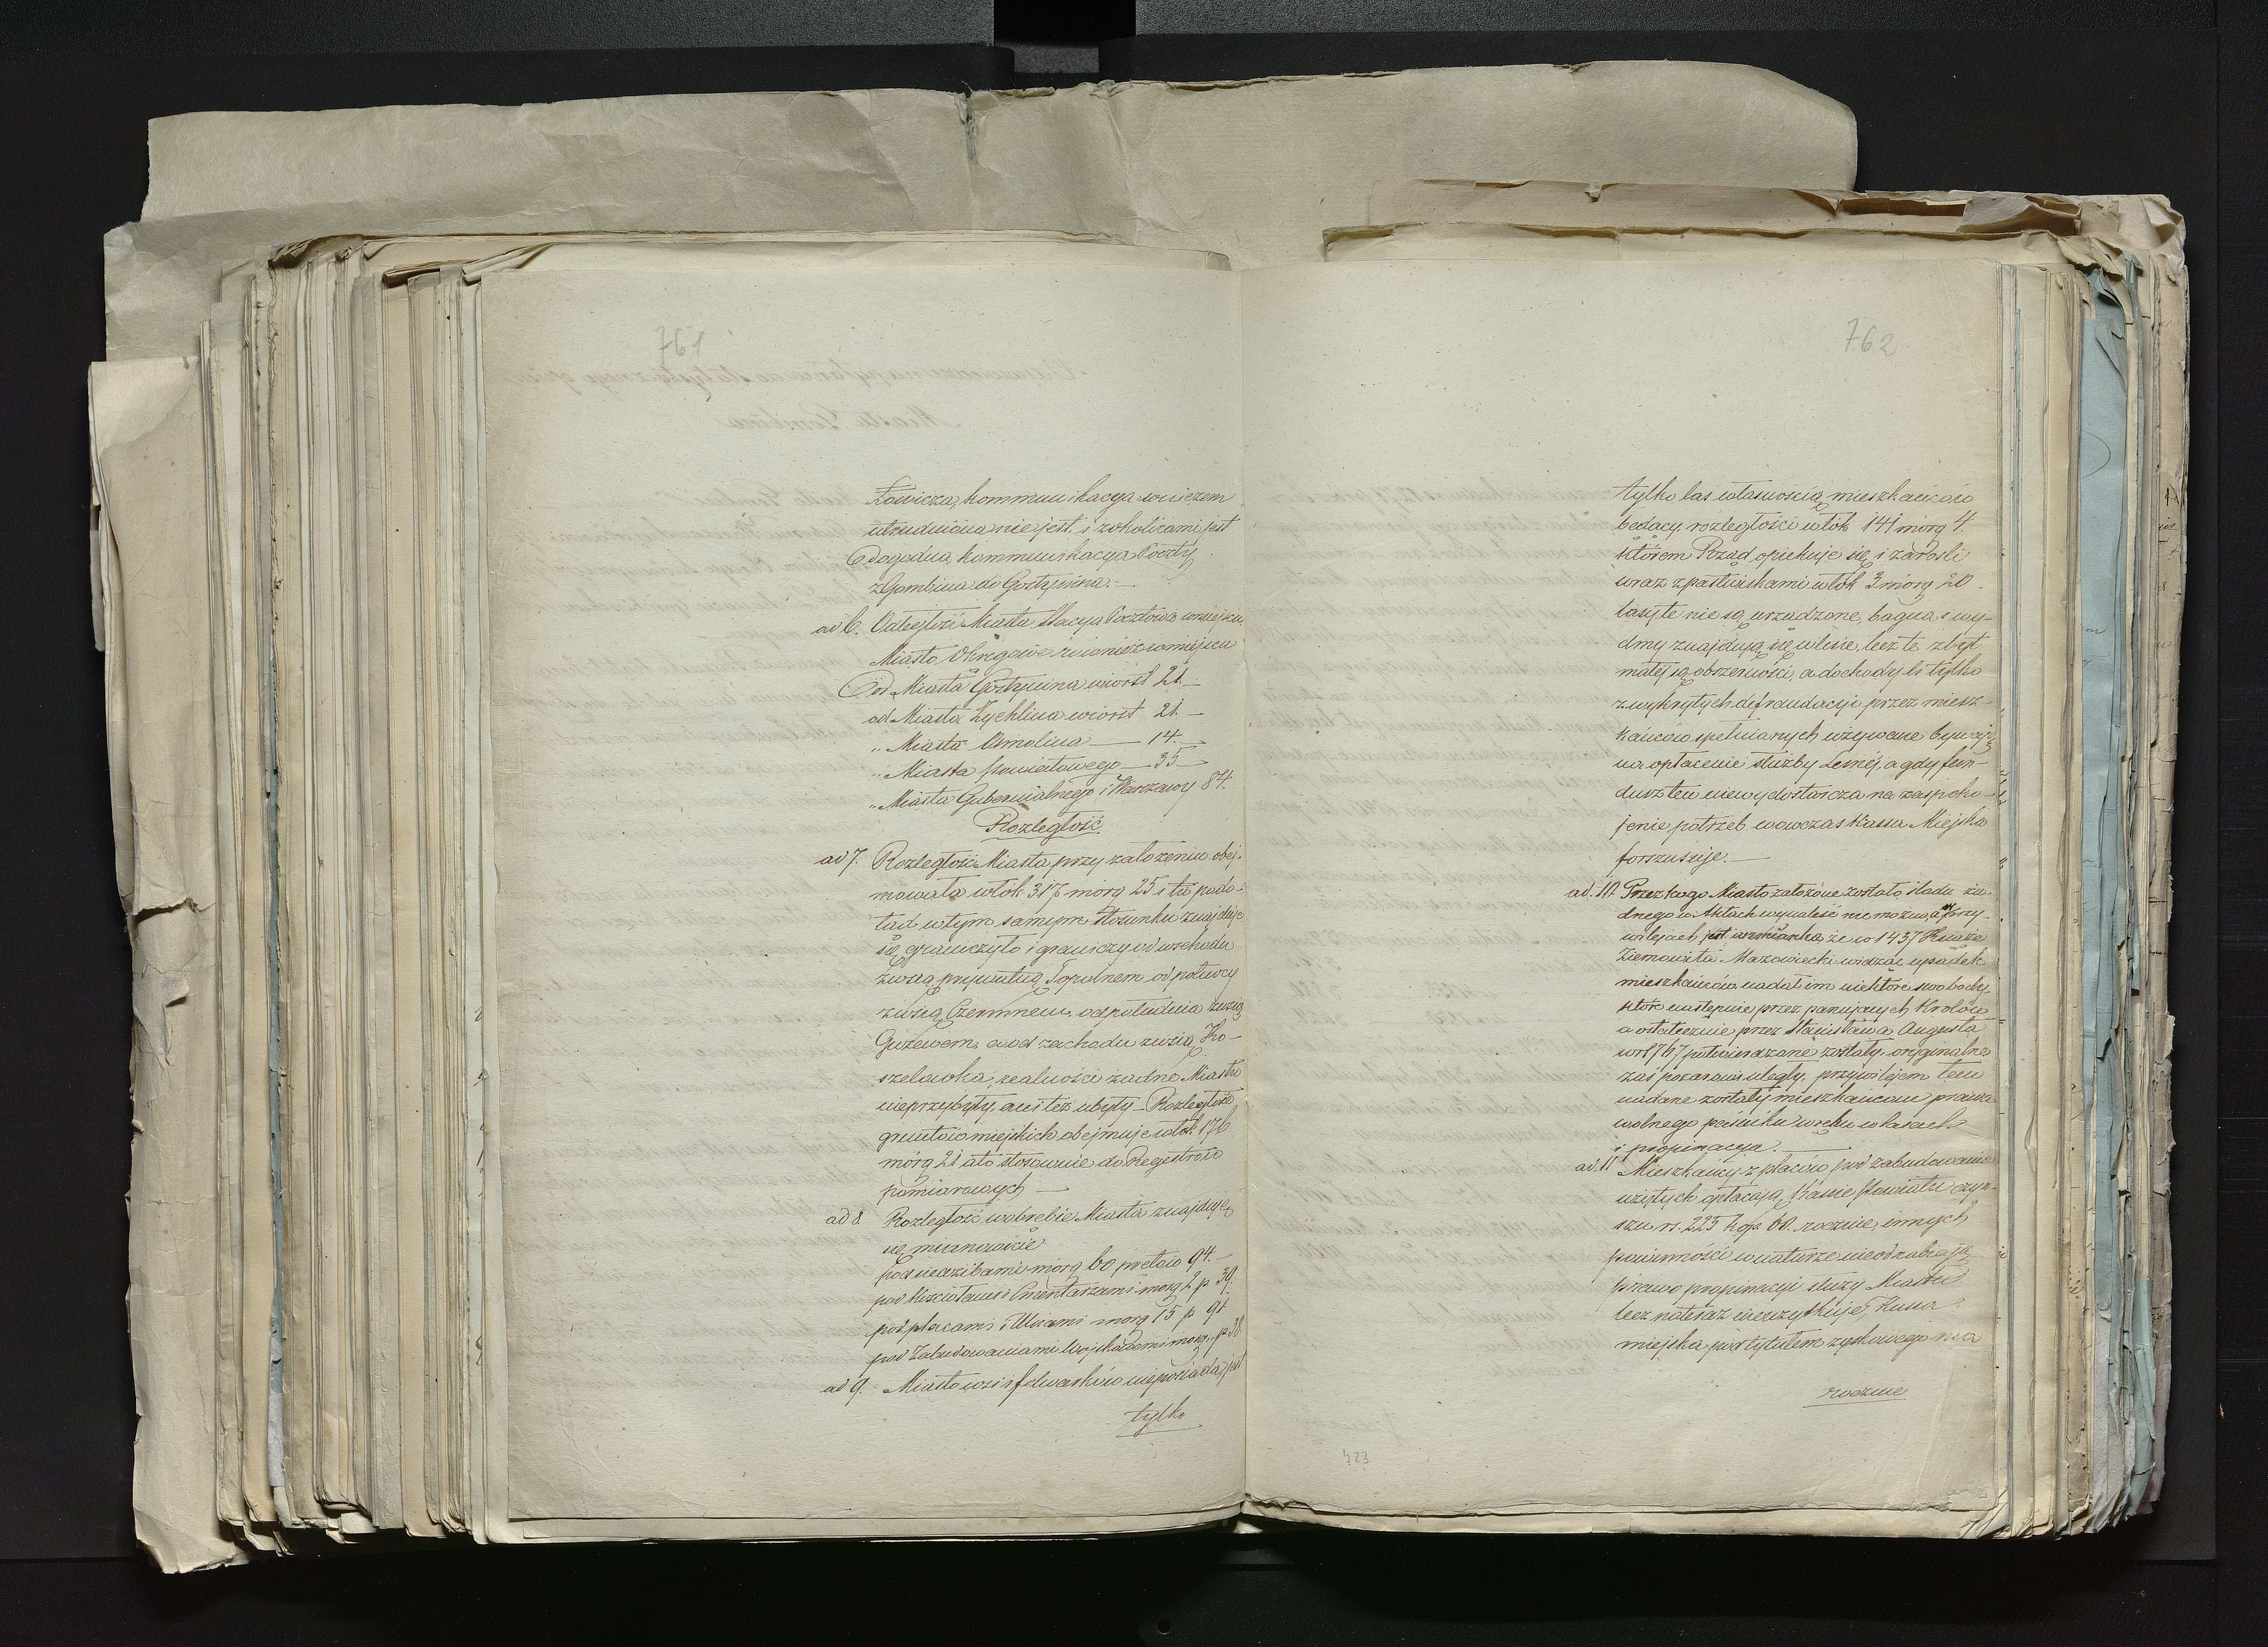 761
Łowicza, kommunikacya w niczem
utrudniona nie jest i z okolicami jest
Dogodna, kommunikacya Poczty
z Gombina do Gostynina. —
ad 6. Odległość Miasta Stacya Pocztowa w miejscu
Miasto Okręgowe również w miejscu
Od Miasta Gostynina wiorst 21. —
od Miasta Żychlina wiorst 21. —
„ Miasta Osmolina — 14 —
„ Miasta Powiatowego — 35 —
„ Miasta Gubernialnego i Warszawy 84.
Rozległość
ad 7. Rozległość Miasta przy założeniu obej-
mowała włók 317 morg 25 i ta podo-
tąd w tym samym stosunku znajduje
się, graniczyło i graniczy od wschodu
z wsią prywatną Topolnem od północy
z wsią Czermnem, od południa z wsią
Guzewem, a od zachodu z wsią Ko-
szelowka, realności żadne Miastu
nie przybyły, ani też ubyły — Rozległość
gruntów miejskich obejmuje włók 176
mórg 21 a to stosownie do Regestrów
pomiarowych —
ad 8 Rozległość w obrębie Miasta znajduje
się mianowicie
pod siedzibami morg 60 prętów 94. —
pod Kościołami i Cmentarzami morg 2 p 39.
pod placami i Ulicami morg 15 p 91
pod Zabudowaniami Wojskowemi morg „ p 38
ad 9. Miasto wsi i folwarków nie posiada, jest
tylko
762
tylko las własnością mieszkańców
będący rozległości włók 141 morg 4.
którem Rząd opiekuje się, i zarośli
wraz z pastwiskami włók 3 morg 20.
lasy te nie są urządzone, bagna i wy-
dmy znajdują się w lesie, lecz te zbyt
małej są obszerności, a dochody li tylko
z wykrytych defraudacji przez miesz-
kańców spełnianych używane bywają
na opłacenie służby Leśnej, a gdy fun-
dusz ten niewydostarcza na zaspoko-
jenie potrzeb wówczas Kassa Miejska
forszusuje. —
ad. 10. Przez kogo Miasto założone zostało śladu ża-
dnego w Aktach wynaleść nie można, a w przy-
wilejach jest wzmianka że w 1437 Książe
Ziemowita Mazowiecki widząc upadek
mieszkańców nadał im niektóre swobody
które następnie przez panujących Królów
a ostatecznie przez Stanisława Augusta
w r 1767 potwierdzone zostały, oryginalne
zaś pożarowi uległy, przywilejem tem
nadane zostały mieszkańcom prawa
wolnego paśniku wrębu w lasach
i propinacya. —
ad. 11 Mieszkańcy z placów pod zabudowanie
wziętych opłacają Kassie Powiatu czyn-
szu rs. 225 kop. 60. rocznie, innych
powinności w naturze nie odrabiają
prawo propinacyi służy Miastu
lecz na teraz niewzytkuje, Kassa
miejska pod tytułem zyskowego ma
rocznie
423